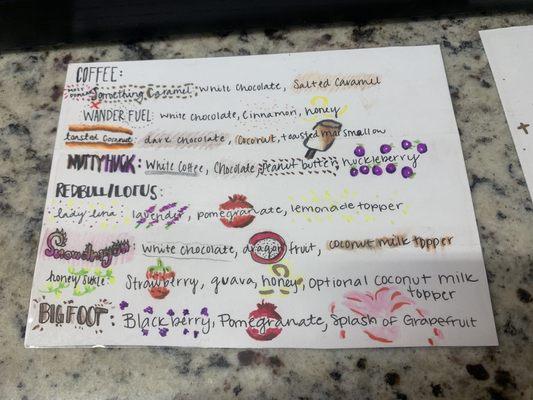 COFFEE:
Something Caramel: White Chocolate, Salted Caramel
WANDER FUEL: white chocolate, Cinnamon, honey
toasted Coconut: dark chocolate, Coconut, toasted marsmallow
NUTTY HUCK: White Coffee, Chocolate, Peanut butter, huckleberry
REDBULL/LOTUS:
lady luna: lavender, pomegranate, lemonade topper
White chocolate, dragon fruit, coconut milk topper
honey sukle: Strawberry, guava, honey, optional coconut milk
topper
BIGFOOT: Blackberry, Pomegranate, Splash of Grapefruit